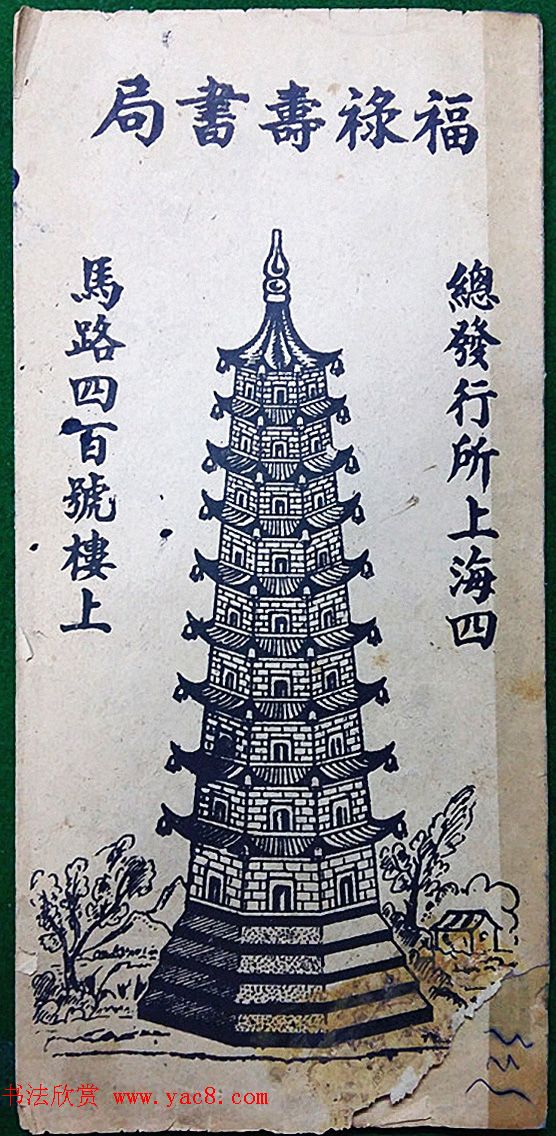 福祿壽書局
總發行所上海四
馬路四百號樓上
书法欣赏 www.yac8.com